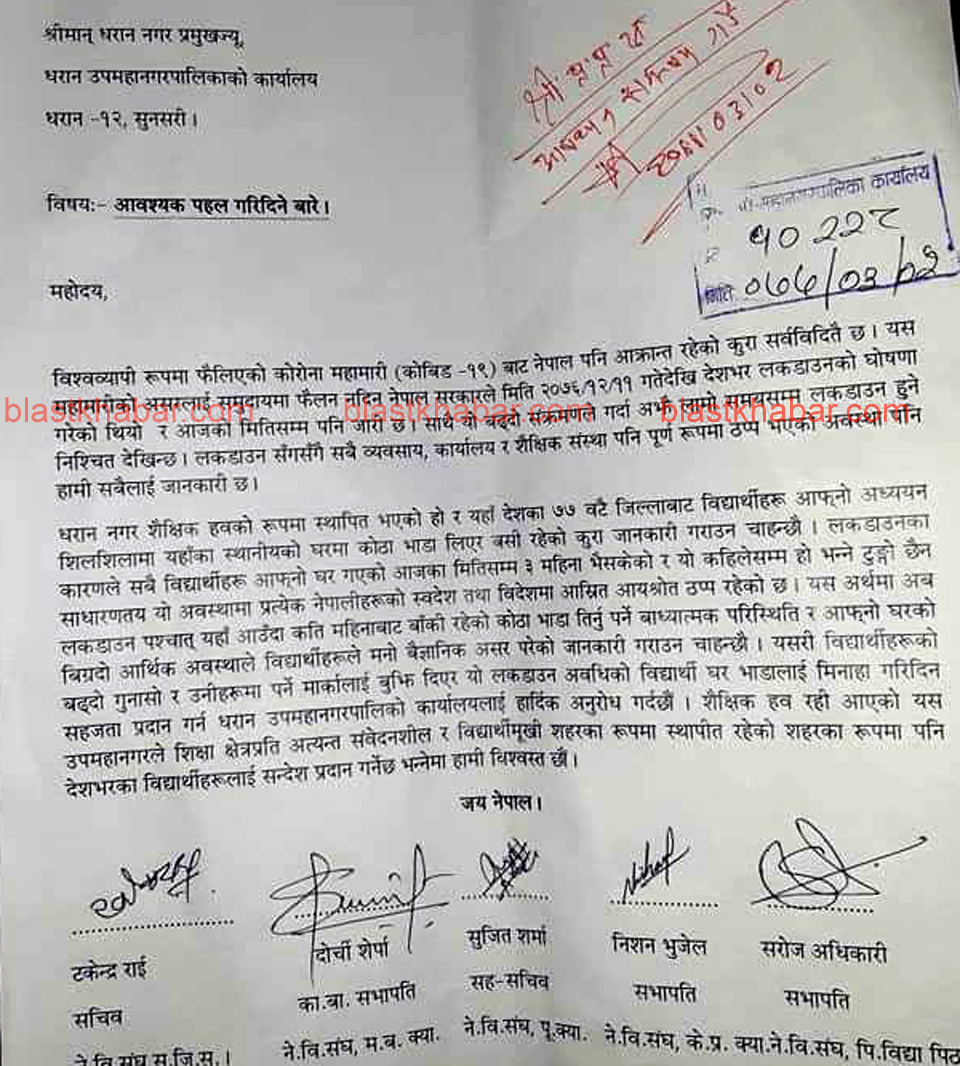 श्रीमान् धरान नगर प्रमुखज्यू,
धरान उपमहानगरपालिकाको कार्यालय
धरान -१२, सुनसरी ।
श्री प्र प्र अ
आवश्यक समन्वय गर्ने
०३।०२
महानगरपालिका कार्यालय
१०२२८
मिति: ०७७/०३/०२
विषय:- आवश्यक पहल गरिदिने बारे ।
महोदय,
विश्वव्यापी रूपमा फैलिएको कोरोना महामारी (कोबिड -१९) बाट नेपाल पनि आक्रान्त रहेको कुरा सर्वविदितै छ । यस
महामारीको असरलाई समुदायमा फैलन नदिन नेपाल सरकारले मिति २०७६/१२/११ गतेदेखि देशभर लकडाउनको घोषणा
गरेको थियो र आजको मितिसम्म पनि जारी छ । साथै यो बढ्दो संक्रमणले गर्दा अझै लामो समयसम्म लकडाउन हुने
निश्चित देखिन्छ । लकडाउन सँगसँगै सबै व्यवसाय, कार्यालय र शैक्षिक संस्था पनि पूर्ण रूपमा ठप्प भएको अवस्था पनि
हामी सबैलाई जानकारी छ ।
धरान नगर शैक्षिक हवको रूपमा स्थापित भएको हो र यहाँ देशका ७७ वटै जिल्लाबाट विद्यार्थीहरू आफ्नो अध्ययन
शिलशिलामा यहाँका स्थानीयको घरमा कोठा भाडा लिएर बसी रहेको कुरा जानकारी गराउन चाहन्छौ । लकडाउनका
कारणले सबै विद्यार्थीहरू आफ्नो घर गएको आजका मितिसम्म ३ महिना भैसकेको र यो कहिलेसम्म हो भन्ने टुङ्गो छैन
साधारणतय यो अवस्थामा प्रत्येक नेपालीहरूको स्वदेश तथा विदेशमा आश्रित आयश्रोत ठप्प रहेको छ । यस अर्थमा अब
लकडाउन पश्चात् यहाँ आउँदा कति महिनाबाट बाँकी रहेको कोठा भाडा तिर्नु पर्ने बाध्यात्मक परिस्थिति र आफ्नो घरको
बिग्रदो आर्थिक अवस्थाले विद्यार्थीहरूले मनो बैज्ञानिक असर परेको जानकारी गराउन चाहन्छौ । यसरी विद्यार्थीहरूको
बढ्दो गुनासो र उनीहरूमा पर्ने मार्कालाई बुझि दिएर यो लकडाउन अवधिको विद्यार्थी घर भाडालाई मिनाहा गरिदिन
सहजता प्रदान गर्न धरान उपमहानगरपालिको कार्यालयलाई हार्दिक अनुरोध गर्दछौं । शैक्षिक हव रही आएको यस
उपमहानगरले शिक्षा क्षेत्रप्रति अत्यन्त संवेदनशील र विद्यार्थीमूखी शहरका रूपमा स्थापीत रहेको शहरका रूपमा पनि
देशभरका विद्यार्थीहरूलाई सन्देश प्रदान गर्नेछ भन्नेमा हामी विश्वस्त छौं ।
जय नेपाल ।
blastkhabar.com blastkhabar.com blastkhabar.com blastkhabar.com
टकेन्द्र राई दोर्ची शेर्पा सुजित शर्मा निशन भुजेल सरोज अधिकारी
सचिव का.बा. सभापति सह-सचिव सभापति सभापति
ने.वि.संघ स.जि.स. । ने.वि.संघ, म.ब. क्या. ने.वि.संघ, पू.क्या. ने.वि.संघ, के.प्र. क्या.ने.वि.संघ, पि.विद्या पिठ